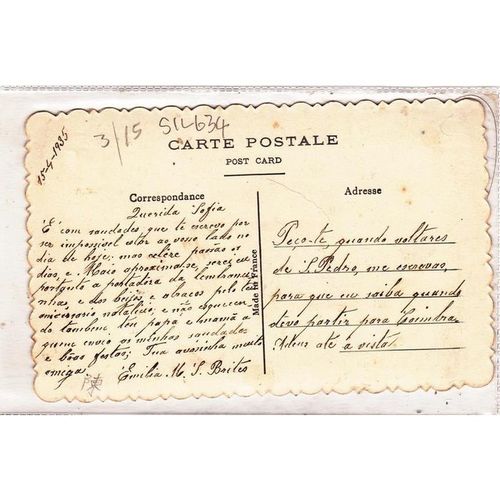 15-4-1935
3/15 SIL634
CARTE POSTALE
POST CARD
Correspondance
Querida Sofia
É com saudades, que te escrevo por
ser impossivel estar ao vosso lado no
dia de hoje; mas
dias, e Maio aproxima-se, serei eu
portanto a portadora da lembranci-
nhas, e dos beijos e abraços pelo teu
aniversario natalicio; e não esquecen-
do tambem, teu papá e mamã a
quem envio as minhas saudades
e boas festas; Tua muito
amiga.
Emilia M. S. Brites
Made in France
Adresse
Peço-te, quando voltares
de S. Pedro, me escrevas,
para que eu saiba quando
devo partir para Coimbra.
Adeus até á vista!